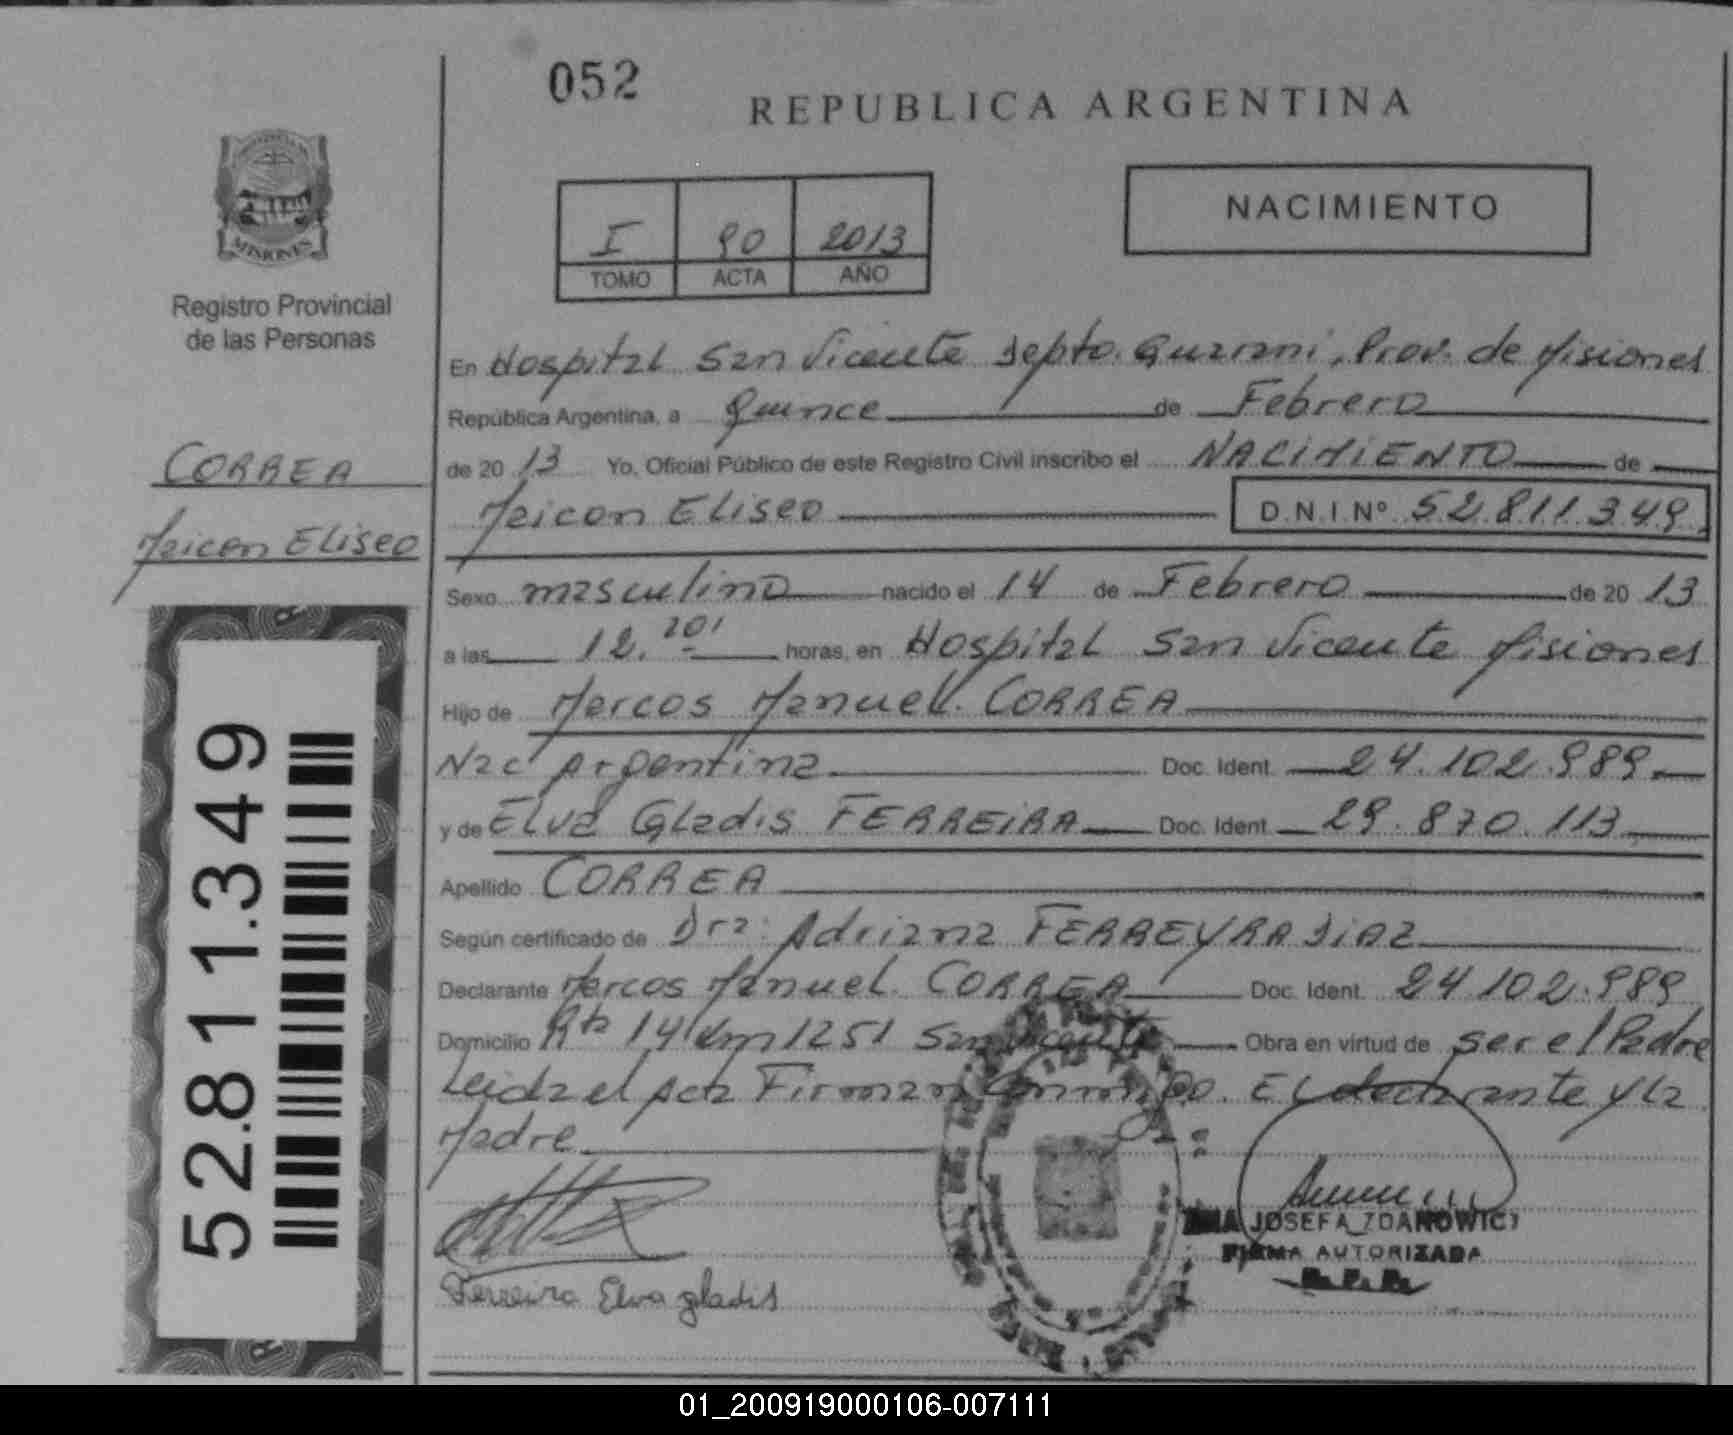 052
REPUBLICA ARGENTINA
MISIONES
Registro Provincial
de las Personas
I 90 2013
TOMO ACTA AÑO
NACIMIENTO
CORREA
Maicon Eliseo
52.811.349
En Hospital San Vicente Depto. Guarani, Prov. de Misiones
República Argentina, a Quince de Febrero
de 20 13 Yo, Oficial Público de este Registro Civil inscribo el NACIMIENTO de
Maicon Eliseo D.N.I Nº 52.811.349
Sexo masculino nacido el 14 de Febrero de 20 13
a las 12. horas, en Hospital San Vicente Misiones
Hijo de Marcos Manuel CORREA
Nac Argentina Doc. Ident 24.102.989
y de Elva Gladis FERREIRA Doc. Ident 29.870.113
Apellido CORREA
Según certificado de Dra: Adriana FERREYRA DIAZ
Declarante Marcos Manuel CORREA Doc. Ident. 24.102.989
Domicilio Rta 14 Km 1251 San Vicente Obra en virtud de ser el Padre
Leida el Acta Firman Conmigo. El declarante y la
Madre
Ferreira Elva gladis
JOSEFA ZDANOWICZ
FIRMA AUTORIZADA
R.P.P.
01_200919000106-007111